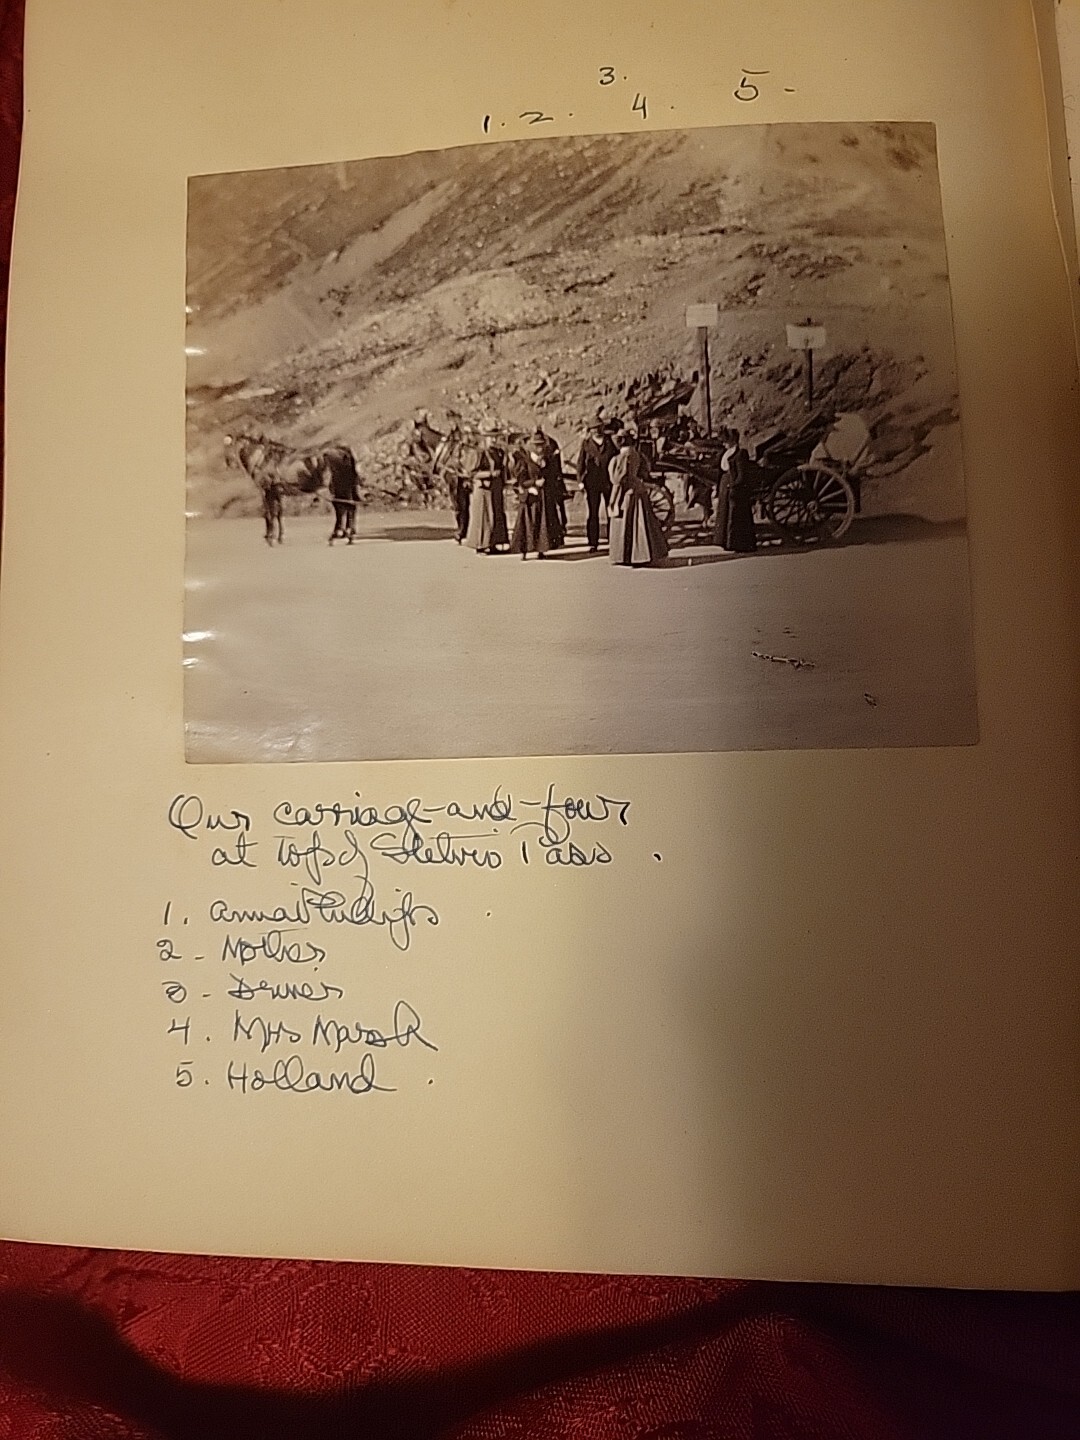 3.
1. 2. 4. 5-
Our carriage-and-four
at top of Stelvio Pass.
1. Anna Phillips
2 - Mother
3 - Driver
4. Mrs Marsh
5. Holland.